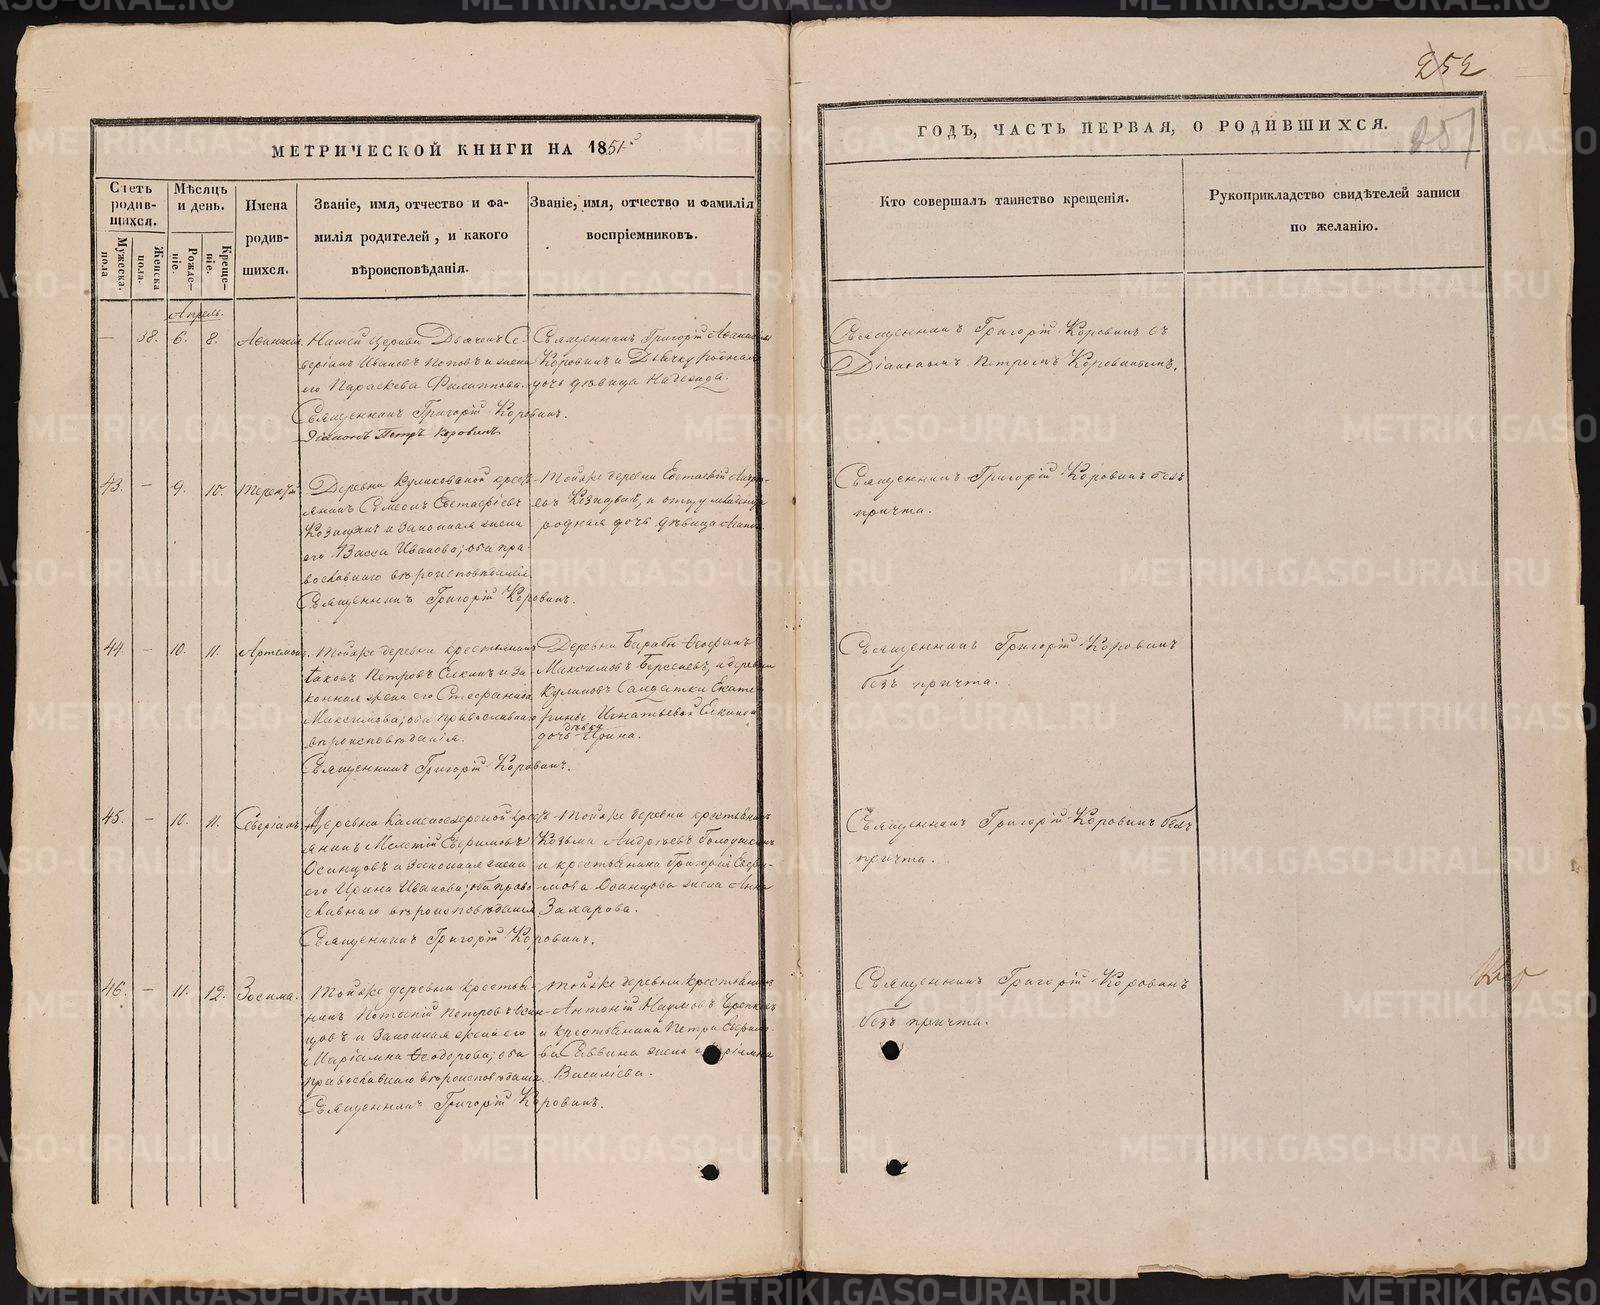 252
251
МЕТРИЧЕСКОЙ КНИГИ НА 1851й
ГОДЪ, ЧАСТЬ ПЕРВАЯ, О РОДИВШИХСЯ.
Счетъ родив-шихся.
Мужеска. пола
Женска пола.
Мѣсяцъ и день.
Рожде-ніе.
Креще-ніе.
Имена родив-шихся.
Званіе, имя, отчество и фа-
милія родителей, и какого
вѣроисповѣданія.
Званіе, имя, отчество и фамилія
воспріемниковъ.
Кто совершалъ таинство крещенія.
Рукоприкладство свидѣтелей записи
по желанію.
Апрель.
— 38. 6. 8. Афанасія
Нашей Церкви Дьячекъ Се-
веріанъ Ивановъ Поповъ и жена
его Параскева Филиппова.
Священникъ Григорій Коровинъ.
Діаконъ Петръ Коровинъ
Священникъ Григорій
Коровинъ и Дьячку родная
дочь дѣвица Надежда.
Священникъ Григорій Коровинъ съ
Діакономъ Петромъ Коровинымъ.
43. — 9. 10. Терентій
Деревни Куликовой крест-
янинъ Симеонъ Евстафіевъ
и Законная жена
его Васса Иванова; оба пра-
вославнаго вѣроисповѣданія
Священникъ Григорій Коровинъ.
Тойже деревни Евстафій
и отцу младенца
родная дочь дѣвица
Священникъ Григорій Коровинъ безъ
причта.
44. — 10. 11. Артемонъ.
Тойже деревни крестьянинъ
Іаковъ Петровъ Елкинъ и За-
конная жена его Стефанида
Максимова; оба православнаго
вѣроисповѣданія.
Священникъ Григорій Коровинъ.
Деревни Барабы Феофанъ
Максимовъ и деревни
Куликовъ Салдатки Екате-
рины Игнатьевой Елкиной
дочь дѣвка Ирина.
Священникъ Григорій Коровинъ
безъ причта.
45. — 10. 11. Северіанъ.
Деревни Каменоозерской крест-
янинъ Мелетій Ефимовъ
Осинцовъ и Законная жена
его Ирина Иванова; оба право-
славнаго вѣроисповѣданія
Священникъ Григорій Коровинъ.
Тойже деревни крестьянинъ
Козьма Андрѣевъ
и крестьянина Григорія Ефи-
мова Осинцова жена Анна
Захарова.
Священникъ Григорій Коровинъ безъ
причта.
46. — 11. 12. Зосима.
Тойже деревни крестья-
нинъ Потапій Петровъ Осин-
цовъ и Законная жена его
Маріамна Феодорова; оба
православнаго вѣроисповѣданія.
Священникъ Григорій Коровинъ.
Тойже деревни крестьянинъ
Антоній Наумовъ
и крестьянина Петра
жена Маріамна
Василіева.
Священникъ Григорій Коровинъ
безъ причта.
METRIKI.GASO-URAL.RU